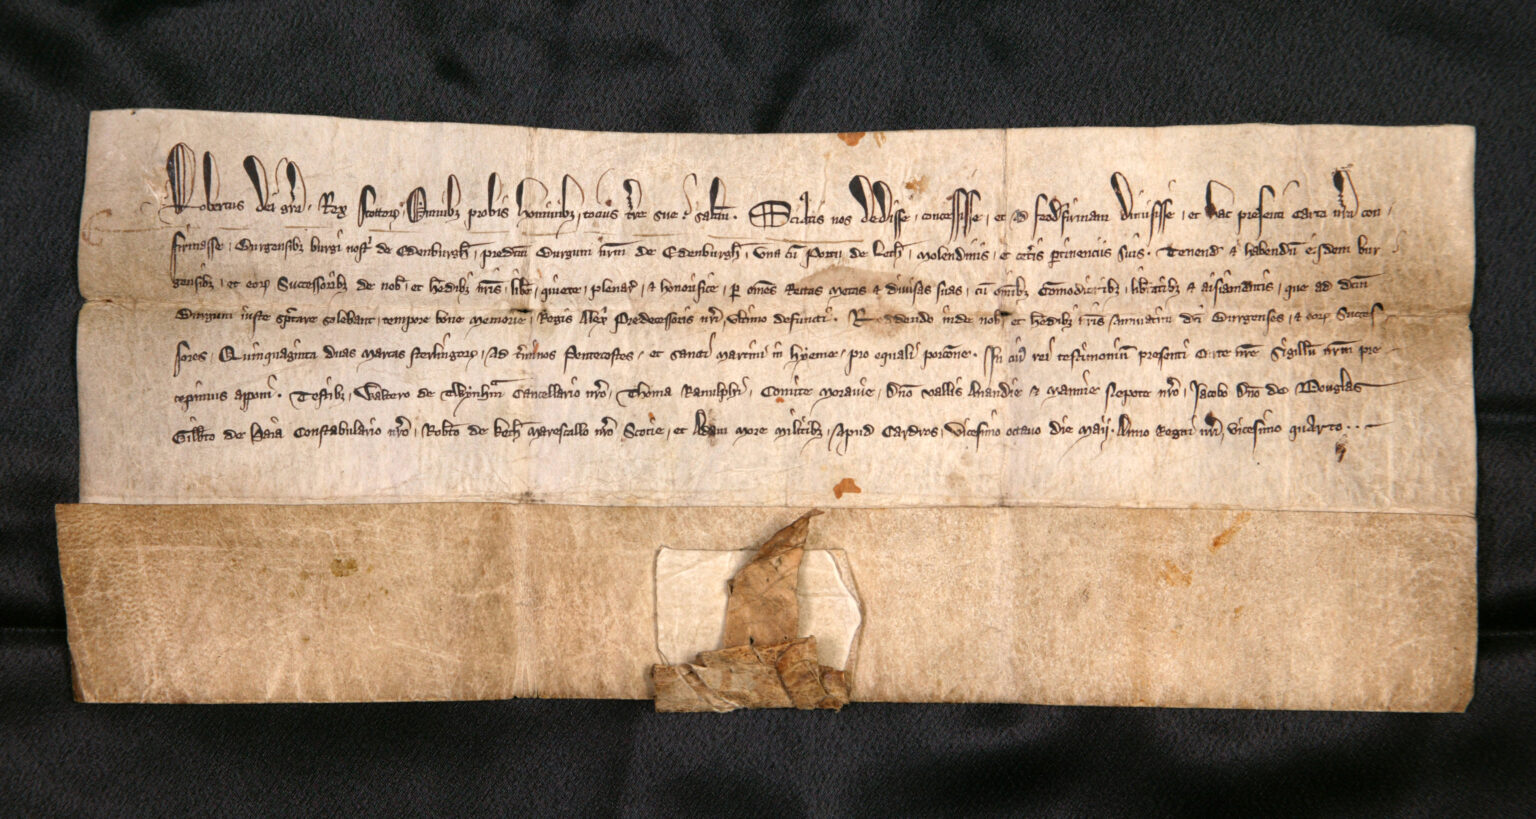 Robertus dei gra . Rex Scottoɽ . Omnibȝ probis hominibȝ tocius tre sue saltm . Sciatis nos dedisse , concessisse , et ad feodfirmam dimisisse , et hac presenti carta nra con
firmasse , Burgensibȝ burgi nostʳ de Edenburgh , predcm Burgum nrm de Edenburgh , una cū Portu de Leth , Molendinis , et cetis ptinenciis suis . Tenend ⁊ habendū eisdem bur
gensibȝ , et eoɽ Successoribȝ de nob , et hedibȝ nris , libe , quiete , plenar , ⁊ honorifice , p omēs Rectas Metas ⁊ divisas suas , cū omībȝ Comoditatibȝ , libtatibȝ ⁊ aisiamentis , que ad dcm
Burgum iuste sptare solebant , tempore bone memorie , Regis Alexʳ Predecessoris nri , ultimo defuncti . Reddendo inde nob , et hedibȝ nris annuatim dci Burgenses , ⁊ eoɽ Succes
sores , Quinquaginta duas Marcas sterlingoɽ , ad tminos Pentecostes , et sancti martini in hyeme , pro equali porcōne . In cuiʼ rei testimoniū presenti Carte nre Sigillū nrm pre
cepimus apponi . Testibȝ , Waltero de Twynhām Cancellario nro , Thoma Ranulphi , Comite Moravie , dno vallis Anandie ⁊ Mannie Nepote nro , Jacobo dno de Douglas
Gilbto de Haia Constabulario nro , Robto de Keth marescallo nro Scocie , et Adam More militibȝ , Apud Cardros , vicesimo octavo die Maij . Anno Regni nri , vicesimo quarto . .